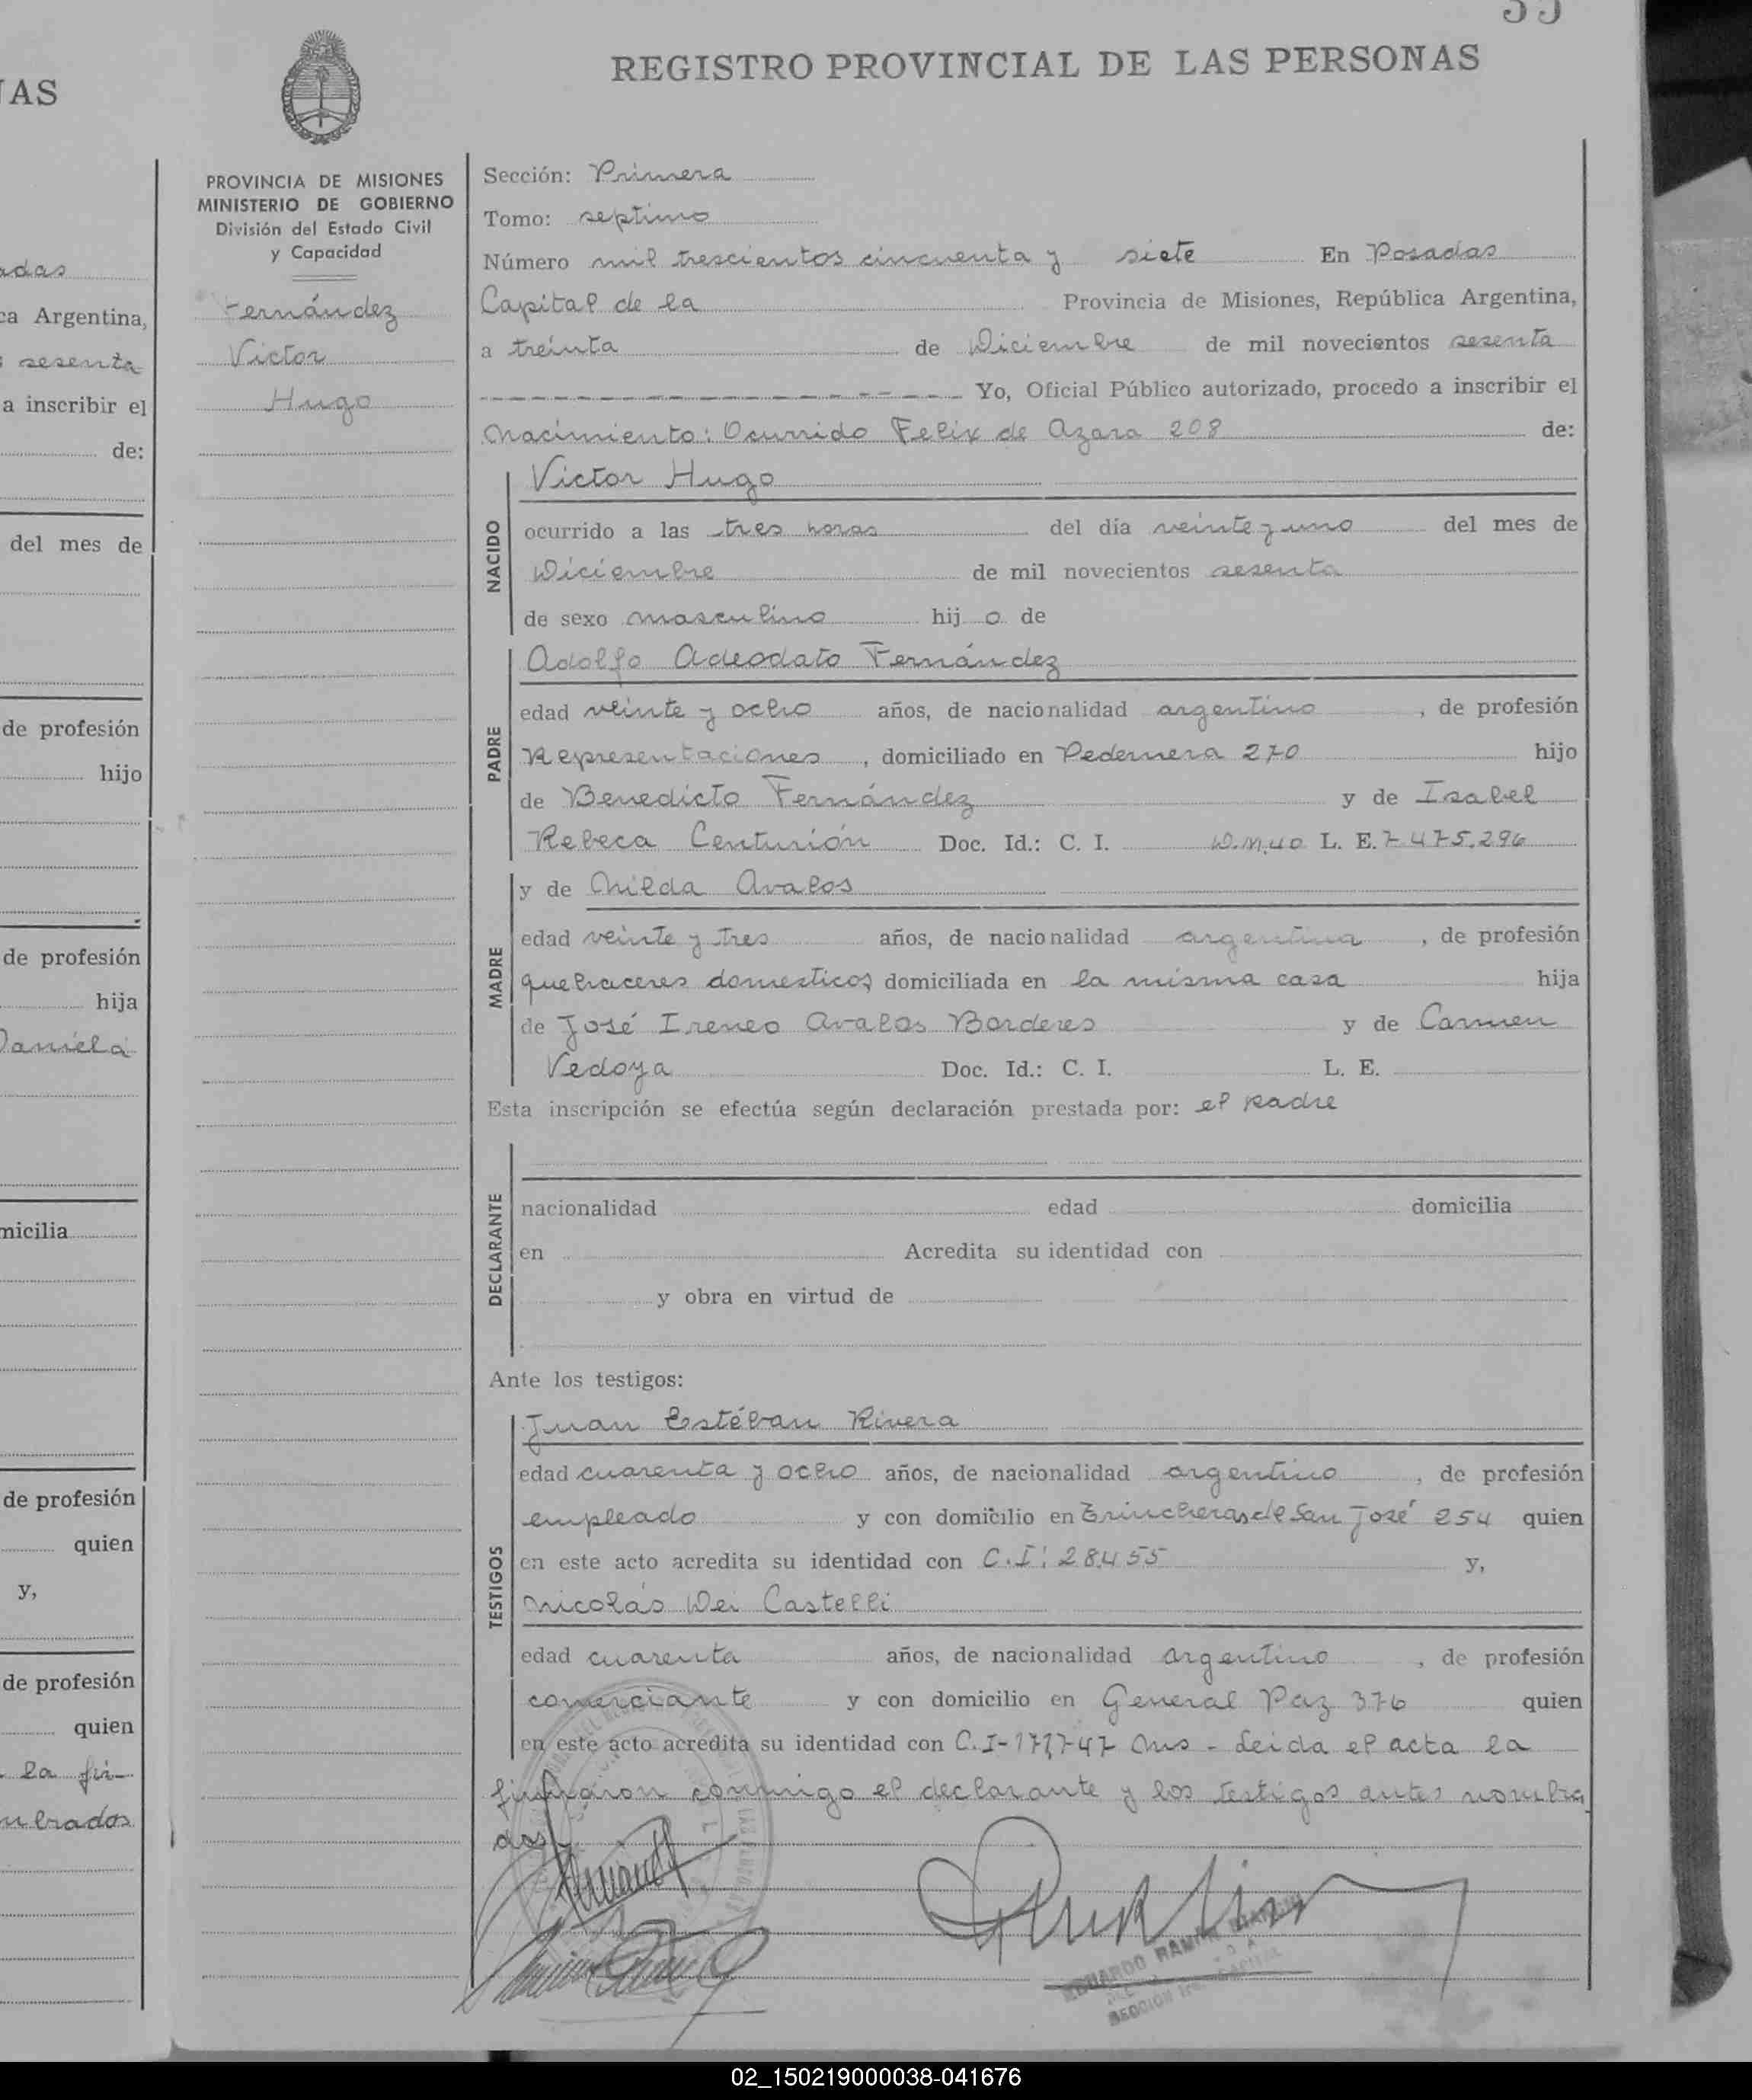 35
REGISTRO PROVINCIAL DE LAS PERSONAS
NAS
adas
ca Argentina,
sesenta
a inscribir el
de:
del mes de
de profesión
hijo
de profesión
hija
Daniela
micilia
de profesión
quien
y,
de profesión
quien
la fir-
mbrados
PROVINCIA DE MISIONES
MINISTERIO DE GOBIERNO
División del Estado Civil
y Capacidad
Fernández
Victor
Hugo
Sección: Primera
Tomo: septimo
Número mil trescientos cincuenta y siete En Posadas
Capital de la Provincia de Misiones, República Argentina,
a treinta de Diciembre de mil novecientos sesenta
Yo, Oficial Público autorizado, procedo a inscribir el
Nacimiento: Ocurrido Felix de Azara 208 de:
NACIDO
Victor Hugo
ocurrido a las tres horas del día veinte y uno del mes de
Diciembre de mil novecientos sesenta
de sexo masculino hij o de
PADRE
Adolfo Adeodato Fernández
edad veinte y ocho años, de nacionalidad argentino , de profesión
Representaciones , domiciliado en Pedernera 270 hijo
de Benedicto Fernández y de Isabel
Rebeca Centurión Doc. Id.: C. I. D.M.40 L. E. 7.475.296
MADRE
y de Nilda Avalos
edad veinte y tres años, de nacionalidad argentina , de profesión
quehaceres domesticos domiciliada en la misma casa hija
de José Ireneo Avalos Borderes y de Carmen
Vedoya Doc. Id.: C. I. L. E.
Esta inscripción se efectúa según declaración prestada por: el padre
DECLARANTE
nacionalidad edad domicilia
en Acredita su identidad con
y obra en virtud de
Ante los testigos:
TESTIGOS
Juan Estéban Rivera
edad cuarenta y ocho años, de nacionalidad argentino , de profesión
empleado y con domicilio en Trincheras de San José 254 quien
en este acto acredita su identidad con C.I: 28.455 y,
Nicolás Dei Castelli
edad cuarenta años, de nacionalidad argentino , de profesión
comerciante y con domicilio en General Paz 376 quien
en este acto acredita su identidad con C.I-177.747 Mis - Leida el acta la
firmaron conmigo el declarante y los testigos antes nombra
dos
EDUARDO RAMON
SECCION
02_150219000038-041676